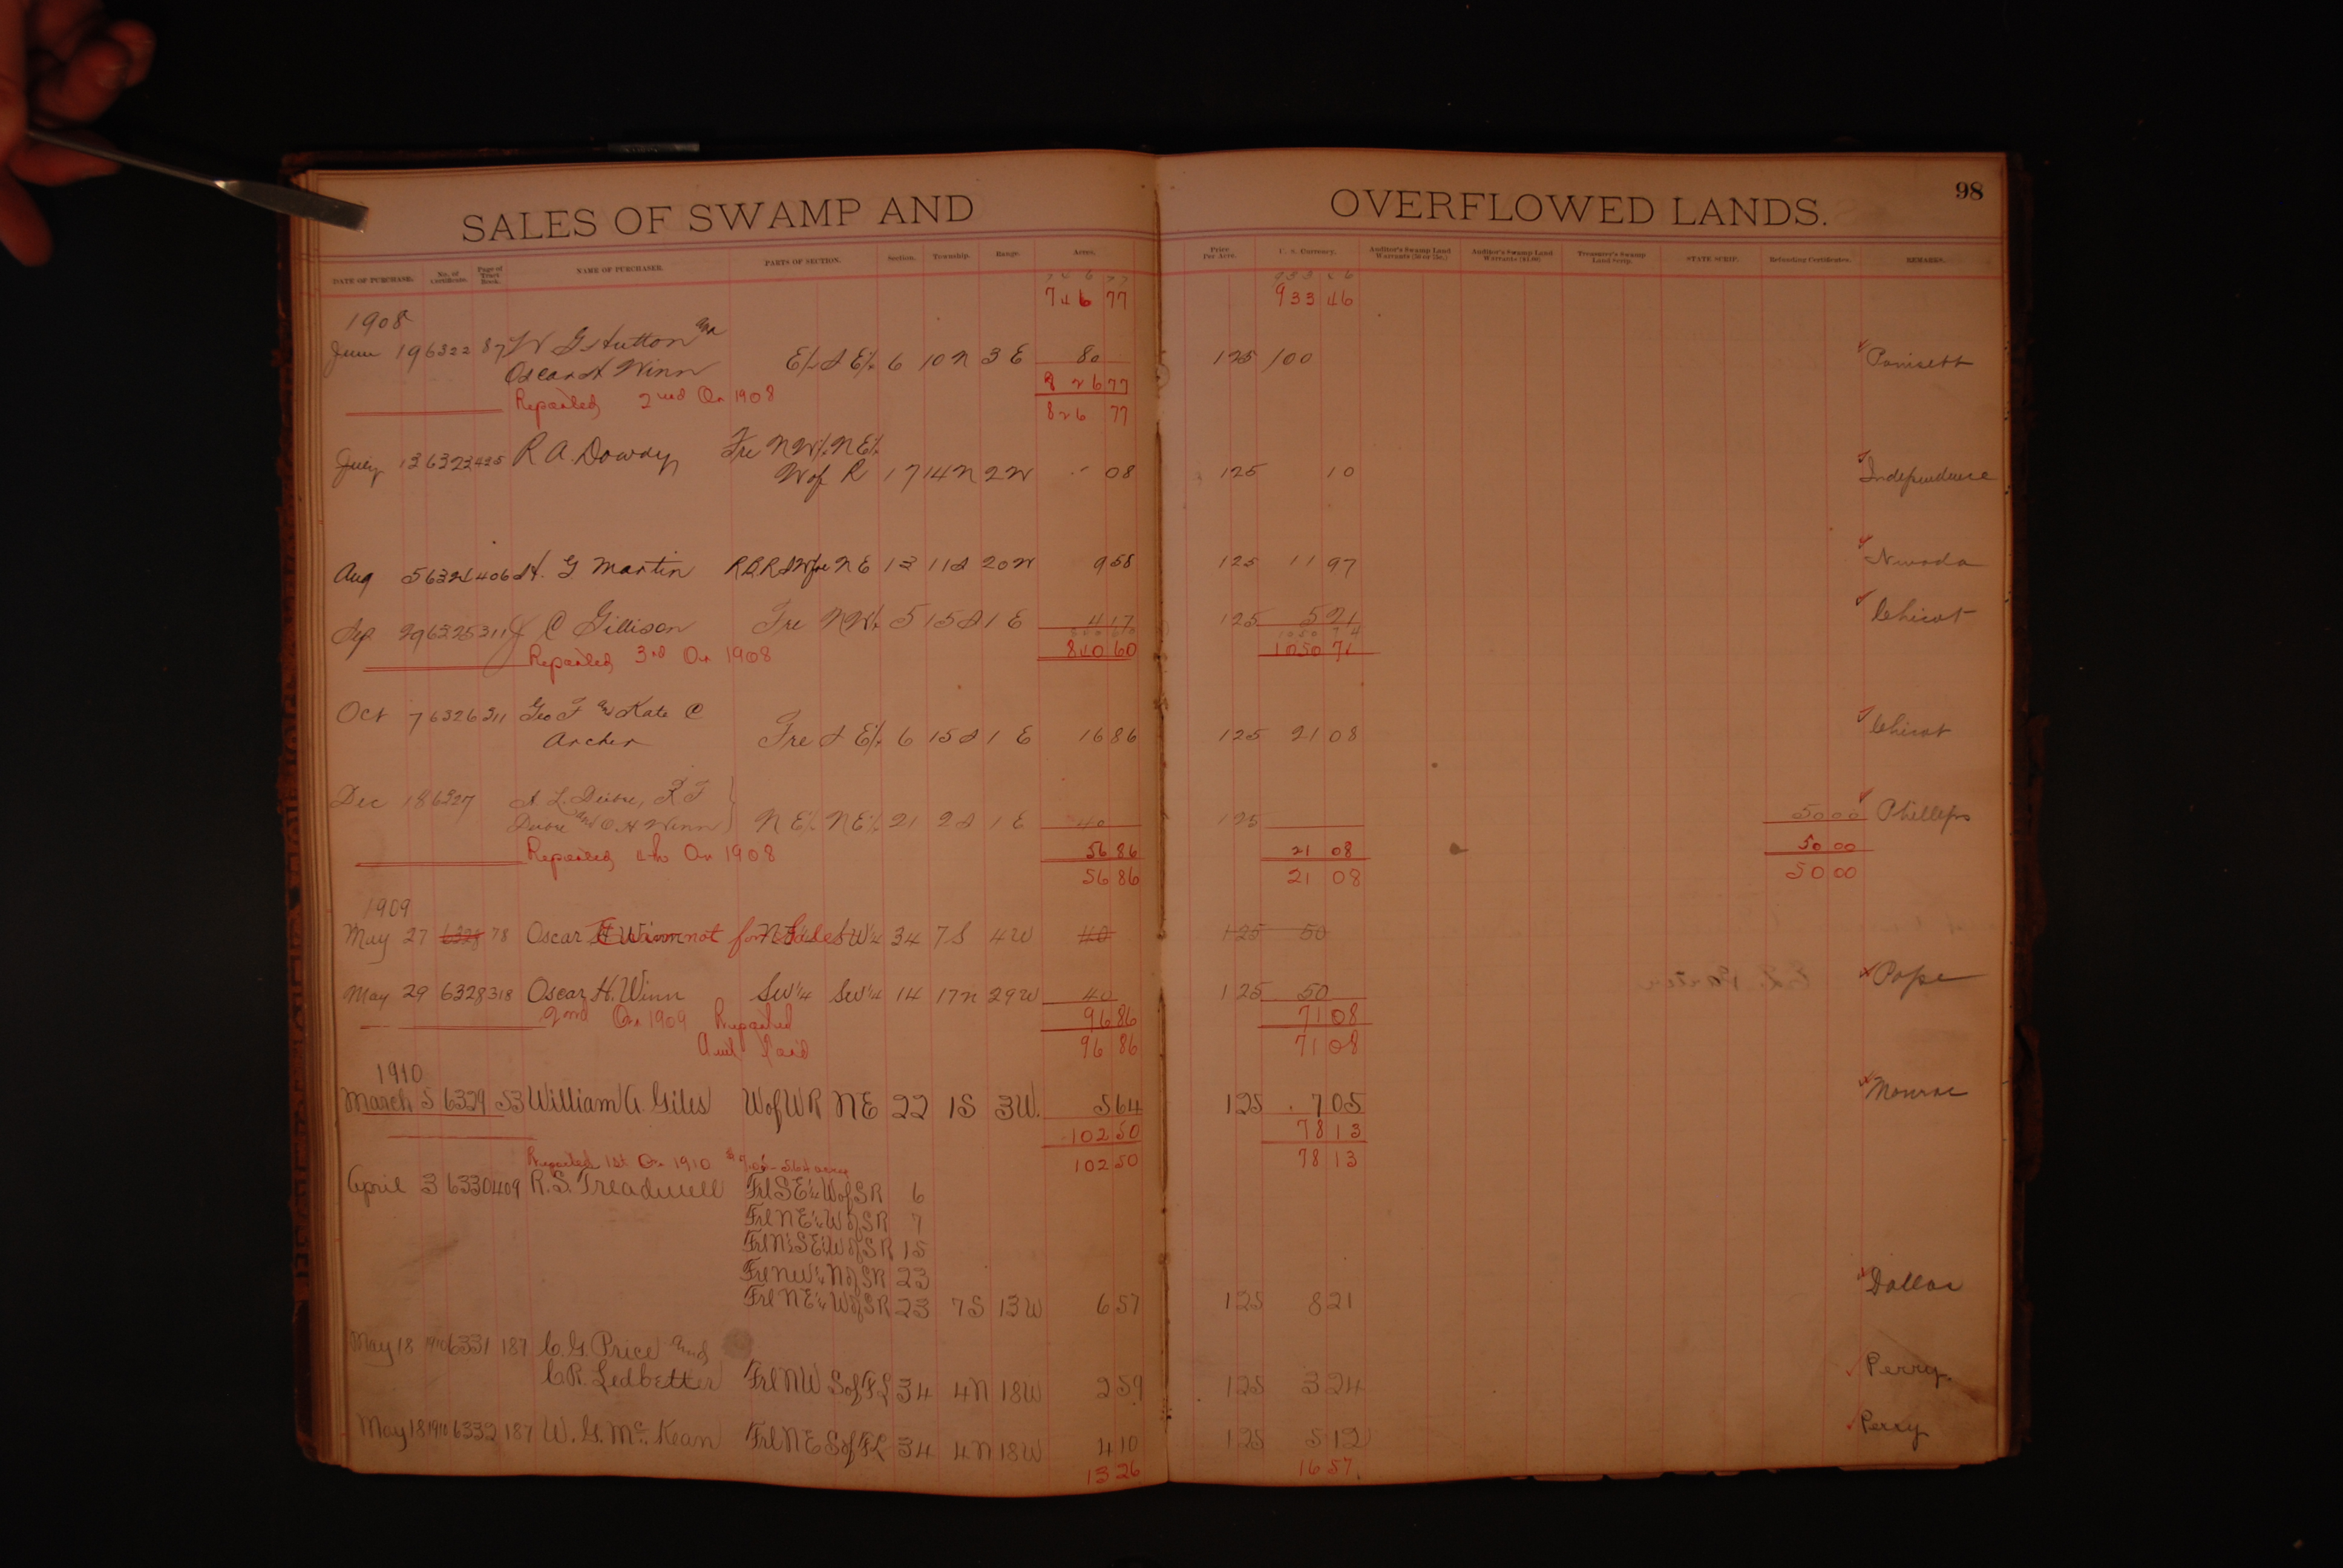 SALES OF SWAMP AND OVERFLOWED LANDS. 98
DATE OF PURCHASE. No. of Certificate. Page of Tract Book. NAME OF PURCHASER. PARTS OF SECTION. Section. Township. Range. Acres. Price Per Acre. U. S. Currency. Auditor's Swamp Land Warrants (50 or 75c.) Auditor's Swamp Land Warrants ($1.00) Treasurer's Swamp Land Scrip. STATE SCRIP. Refunding Certificates. REMARKS.
746 77 933 46
746 77 933 46
1908
June 19 6322 87 W G Hutton and
Oscar H Winn E½ S E¼ 6 10 N 3 E 80 125 100 Poinsett
826 77
Reported 2nd Qr 1908
826 77
July 13 6323 425 R A. Dowdy Frc N W¼ N E¼
W of R 17 14 N 2 W 08 125 10 Independence
Aug 5 6324 406 H. G Martin N E 13 11 S 20 W 9 58 125 11 97 Nevada
Sep 29 6325 311 J C Gillison Frc N W¼ 5 15 S 1 E 4 17 125 5 21 Chicot
Reported 3rd Qr 1908 840 60 1050 74
Oct 7 6326 311 Geo F and Kate C
Archer Frc S E¼ 6 15 S 1 E 16 86 125 21 08 Chicot
Dec 18 6327
and O H Winn N E¼ N E¼ 21 2 S 1 E 40 125 50 00 Phillips
Reported 4th Qr 1908 56 86 21 08 50 00
56 86 21 08 50 00
1909
May 27 6328 78 Oscar H Winn not for Sale SW¼ 34 7 S 4 W 40 125 50
May 29 6328 318 Oscar H. Winn SW¼ SW¼ 14 17 N 29 W 40 125 50 Pope
2nd Qr 1909 Reported 96 86 71 08
Paid 96 86 71 08
1910
March 5 6329 53 William A. Giles W of W R N E 22 1 S 3 W. 5 64 125 7 05 Monroe
102 50 78 13
Reported 1st Qr 1910 $7.05 - 5.64 acres 102 50 78 13
April 3 6330 409 R. S. Treadwell Frl S E¼ W of S R 6
Frl N E¼ W of S R 7
Frl N½ S E¼ W of S R 15
Frl N W¼ N of S R 23
Frl N E¼ W of S R 23 7 S 13 W 6 57 125 8 21 Dallas
May 18 1910 6331 187 C. G. Price and
C. R. Ledbetter Frl N W S of F L 34 4 N 18 W 2 59 125 3 24 Perry.
May 18 1910 6332 187 W. G. Mc. Kean Frl N E S of F L 34 4 N 18 W 4 10 125 5 12 Perry
13 26 16 57.